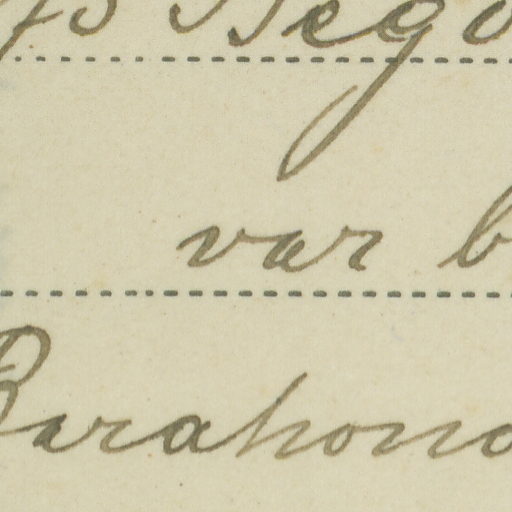 Bego
var b
Barahona